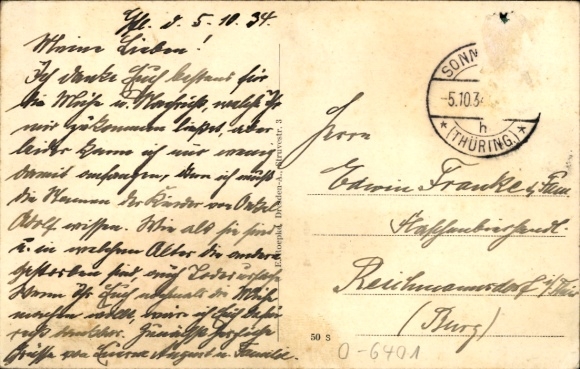 d. 5.10.34.
Meine Lieben!
Ich danke Euch bestens für
die Mühe u. Nachricht, welch Ihr
mir zukommen ließet, aber
leider kann ich nur wenig
damit anfangen, denn ich muß
die Namen der Kinder von Onkel
Adolf wissen. Wie alt sie sind
u. in welchem Alter die anderen
gestorben sind und
Wenn Ihr Euch nochmals die Mühe
machen wollt, wäre ich Euch dafür
recht dankbar. Herzliche
Grüße von August u. Familie.
Dresden-A., Struvestr. 3
SONN
5.10.34
h
* (THÜRING.) *
Herrn
Edwin Franke u. Fam
Flaschenbierhandl.
Reichmannsdorf i/Thür
(Burg)
50 S
O-6401